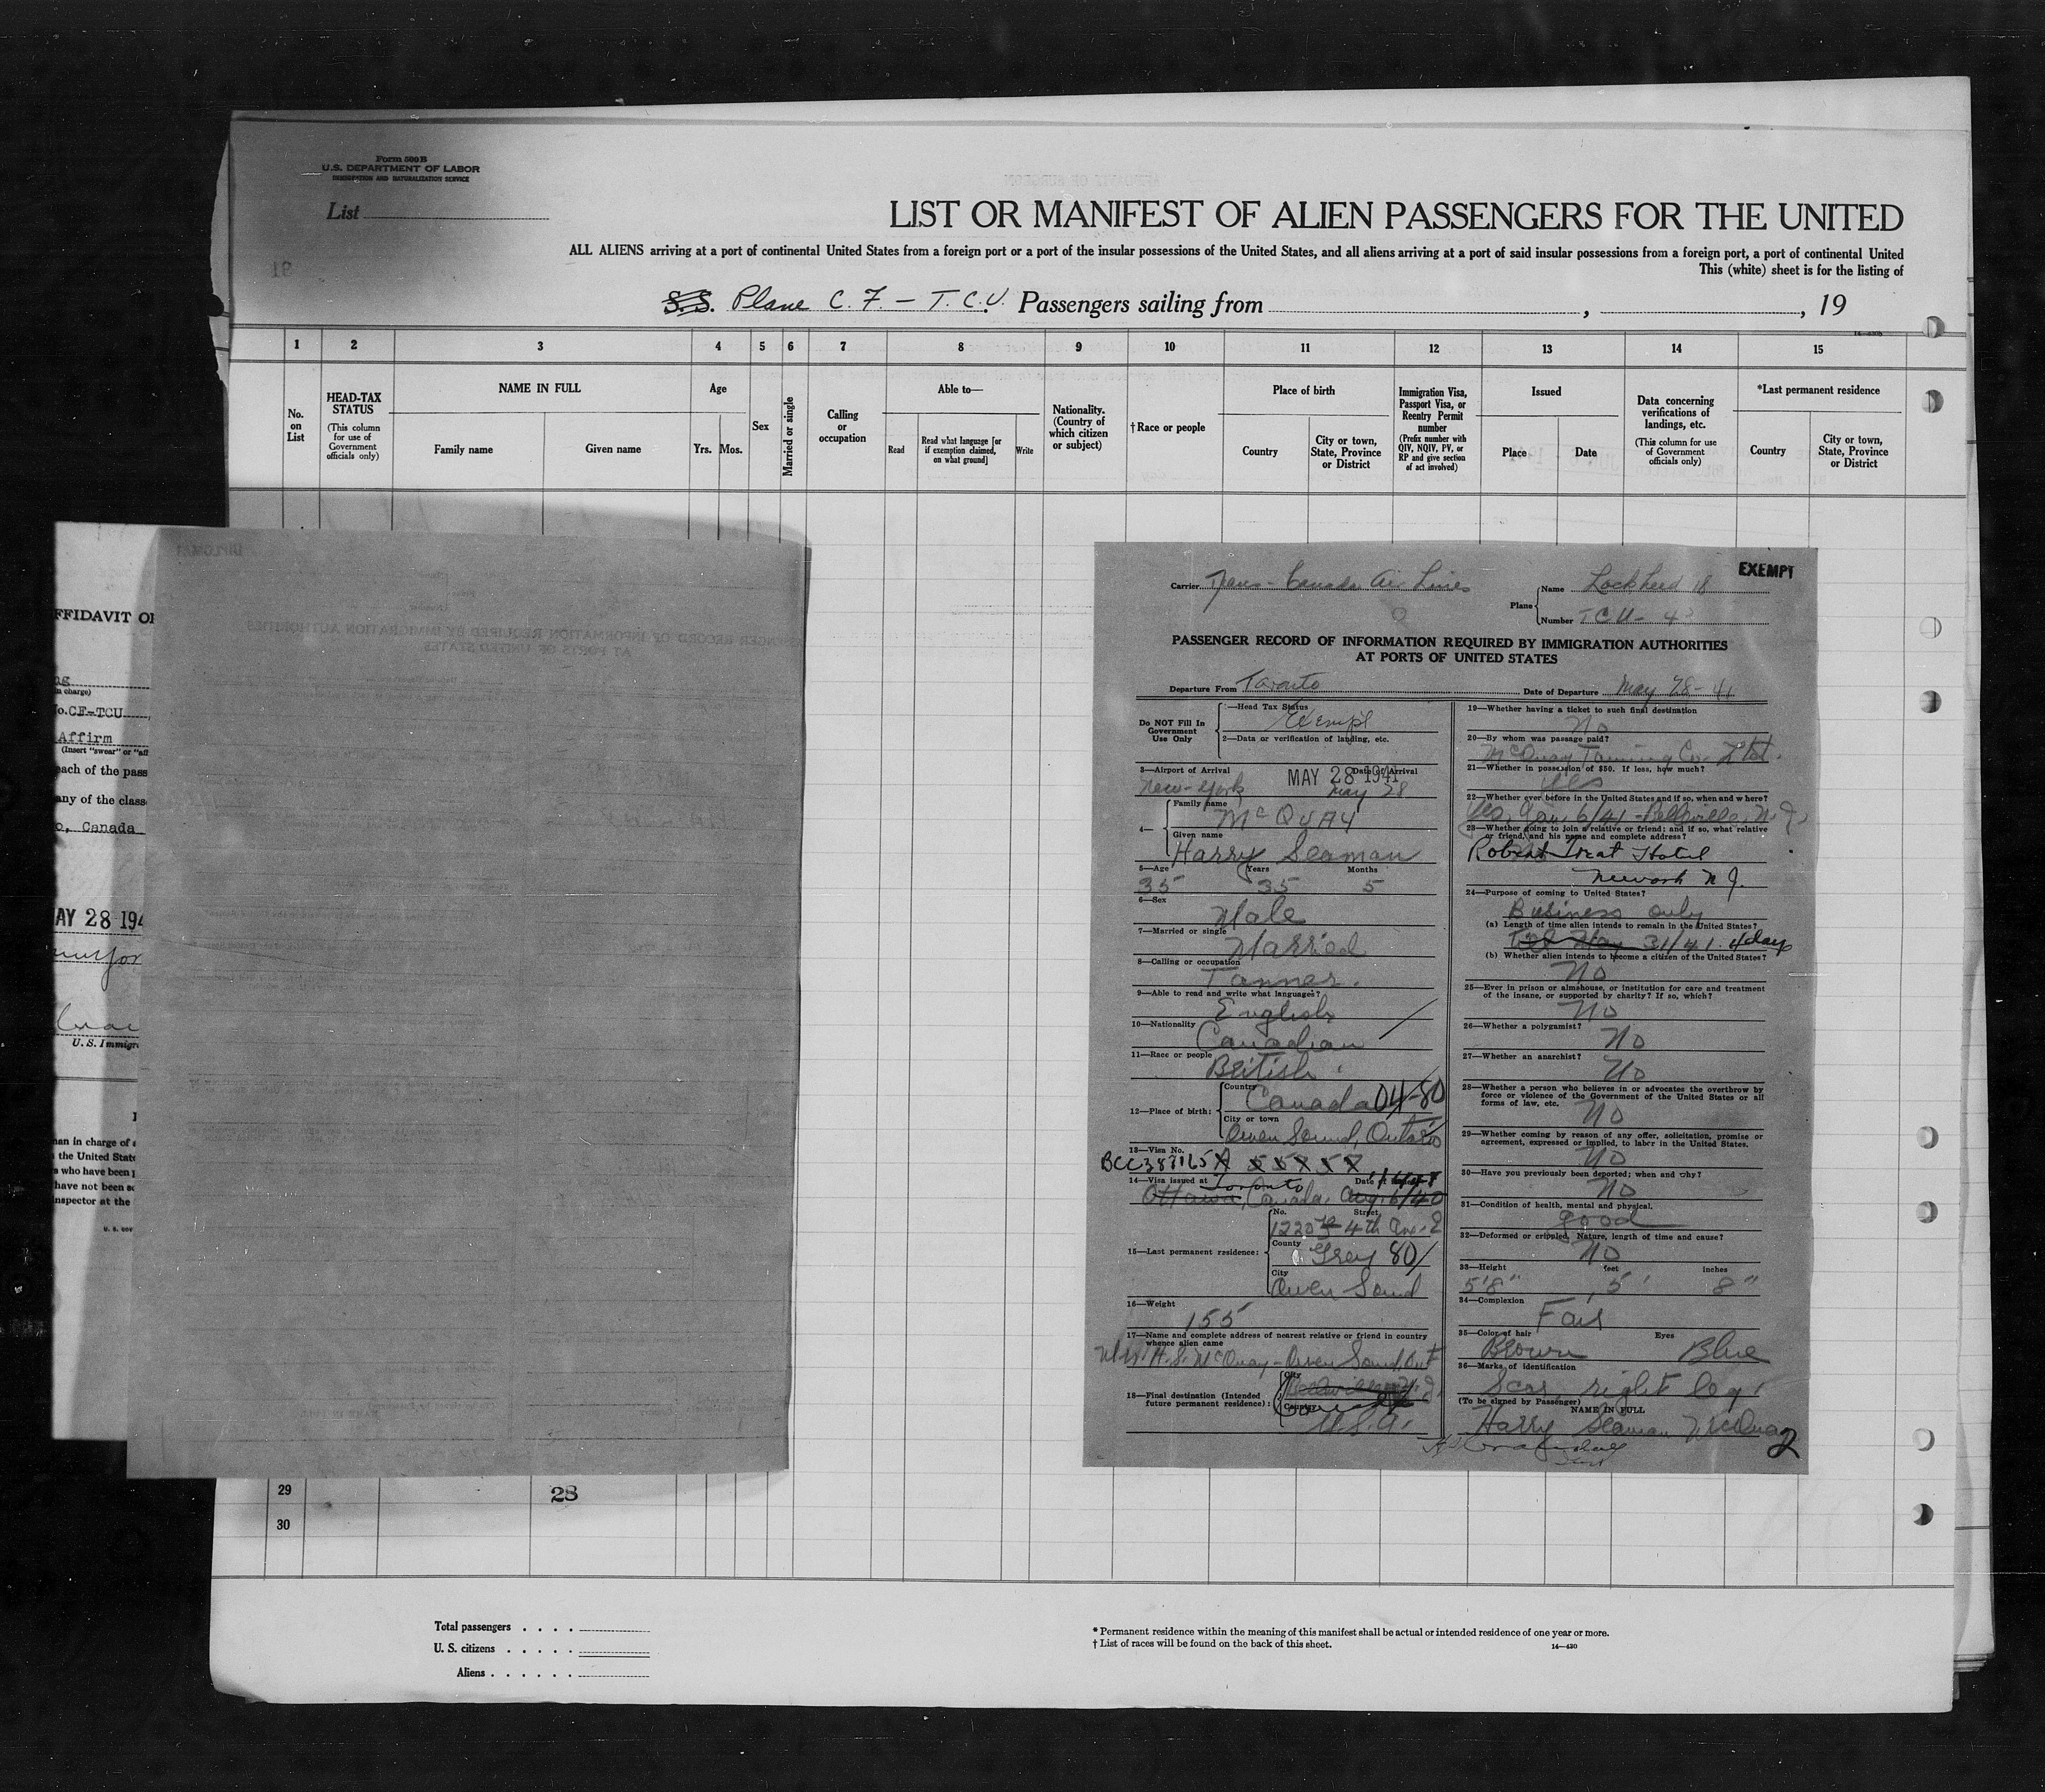 Form 500 B
U.S. DEPARTMENT OF LABOR
IMMIGRATION AND NATURALIZATION SERVICE
List
LIST OR MANIFEST OF ALIEN PASSENGERS FOR THE UNITED
ALL ALIENS arriving at a port of continental United States from a foreign port or a port of the insular possessions of the United States, and all aliens arriving at a port of said insular possessions from a foreign port, a port of continental United
This (white) sheet is for the listing of
S.S. Plane C. F. - T. C. U. Passengers sailing from , , 19
1 2 3 4 5 6 7 8 9 10 11 12 13 14 15
No. on List
HEAD-TAX STATUS
(This column for use of Government officials only)
NAME IN FULL
Family name Given name
Age
Yrs. Mos.
Sex
Married or single
Calling or occupation
Able to—
Read
Read what language [or if exemption claimed, on what ground]
Write
Nationality. (Country of which citizen or subject)
†Race or people
Place of birth
Country
City or town, State, Province or District
Immigration Visa, Passport Visa, or Reentry Permit number
(Prefix number with QIV, NQIV, PV, or RP and give section of act involved)
Issued
Place Date
Data concerning verifications of landings, etc.
(This column for use of Government officials only)
*Last permanent residence
Country
City or town, State, Province or District
FFIDAVIT OF
ng
n charge)
o. CF-TCU
Affirm
(Insert "swear" or "aff
each of the pass
any of the classe
o, Canada
AY 28 194
U. S. Immigr
man in charge of
the United State
s who have been
have not been
inspector at the
EXEMPT
Carrier Trans-Canada Air Lines
Plane
Name Lockheed 18
Number TCU-43
PASSENGER RECORD OF INFORMATION REQUIRED BY IMMIGRATION AUTHORITIES
AT PORTS OF UNITED STATES
Departure From Toronto Date of Departure May 28-41
Do NOT Fill In Government Use Only
1—Head Tax Status
Exempt
2—Data or verification of landing, etc.
3—Airport of Arrival Date of Arrival
New-York MAY 28 1941 May 28
4—
Family name
McQUAY
Given name
Harry Seaman
5—Age Years Months
35 35 5
6—Sex
Male
7—Married or single
Married
8—Calling or occupation
Tanner.
9—Able to read and write what languages?
English
10—Nationality
Canadian
11—Race or people
British
12—Place of birth:
Country
Canada 04-80
City or town
Owen Sound, Ontario
13—Visa No.
BCC387165
14—Visa issued at Toronto
Ottawa, Canada, Aug. 6/40
15—Last permanent residence:
No. Street
1220 4th Ave. E
County
Grey 80/
City
Owen Sound
16—Weight
155
17—Name and complete address of nearest relative or friend in country whence alien came
H. S. McQuay - Owen Sound, Ont
18—Final destination (Intended future permanent residence):
City
Belleville N. J.
Country
Canada
U.S.A.
19—Whether having a ticket to such final destination
No
20—By whom was passage paid?
McQuay Tanning Co. Ltd.
21—Whether in possession of $50. If less, how much?
Yes
22—Whether ever before in the United States and if so, when and where?
Yes, Jan. 6/41 - Belleville, N. J.
23—Whether going to join a relative or friend; and if so, what relative or friend, and his name and complete address?
Robert Treat Hotel
Newark N J.
24—Purpose of coming to United States?
Business only
(a) Length of time alien intends to remain in the United States?
Till May 31/41. 4 day
(b) Whether alien intends to become a citizen of the United States?
No
25—Ever in prison or almshouse, or institution for care and treatment of the insane, or supported by charity? If so, which?
No
26—Whether a polygamist?
No
27—Whether an anarchist?
No
28—Whether a person who believes in or advocates the overthrow by force or violence of the Government of the United States or all forms of law, etc.
No
29—Whether coming by reason of any offer, solicitation, promise or agreement, expressed or implied, to labor in the United States.
No
30—Have you previously been deported; when and why?
No
31—Condition of health, mental and physical.
good
32—Deformed or crippled. Nature, length of time and cause?
No
33—Height feet inches
5'8" 5' 8"
34—Complexion
Fair
35—Color of hair Eyes
Brown Blue
36—Marks of identification
Scar, right leg.
(To be signed by Passenger)
NAME IN FULL
Harry Seaman McQuay
2
29 28
30
Total passengers
U. S. citizens
Aliens
* Permanent residence within the meaning of this manifest shall be actual or intended residence of one year or more.
† List of races will be found on the back of this sheet.
14—430